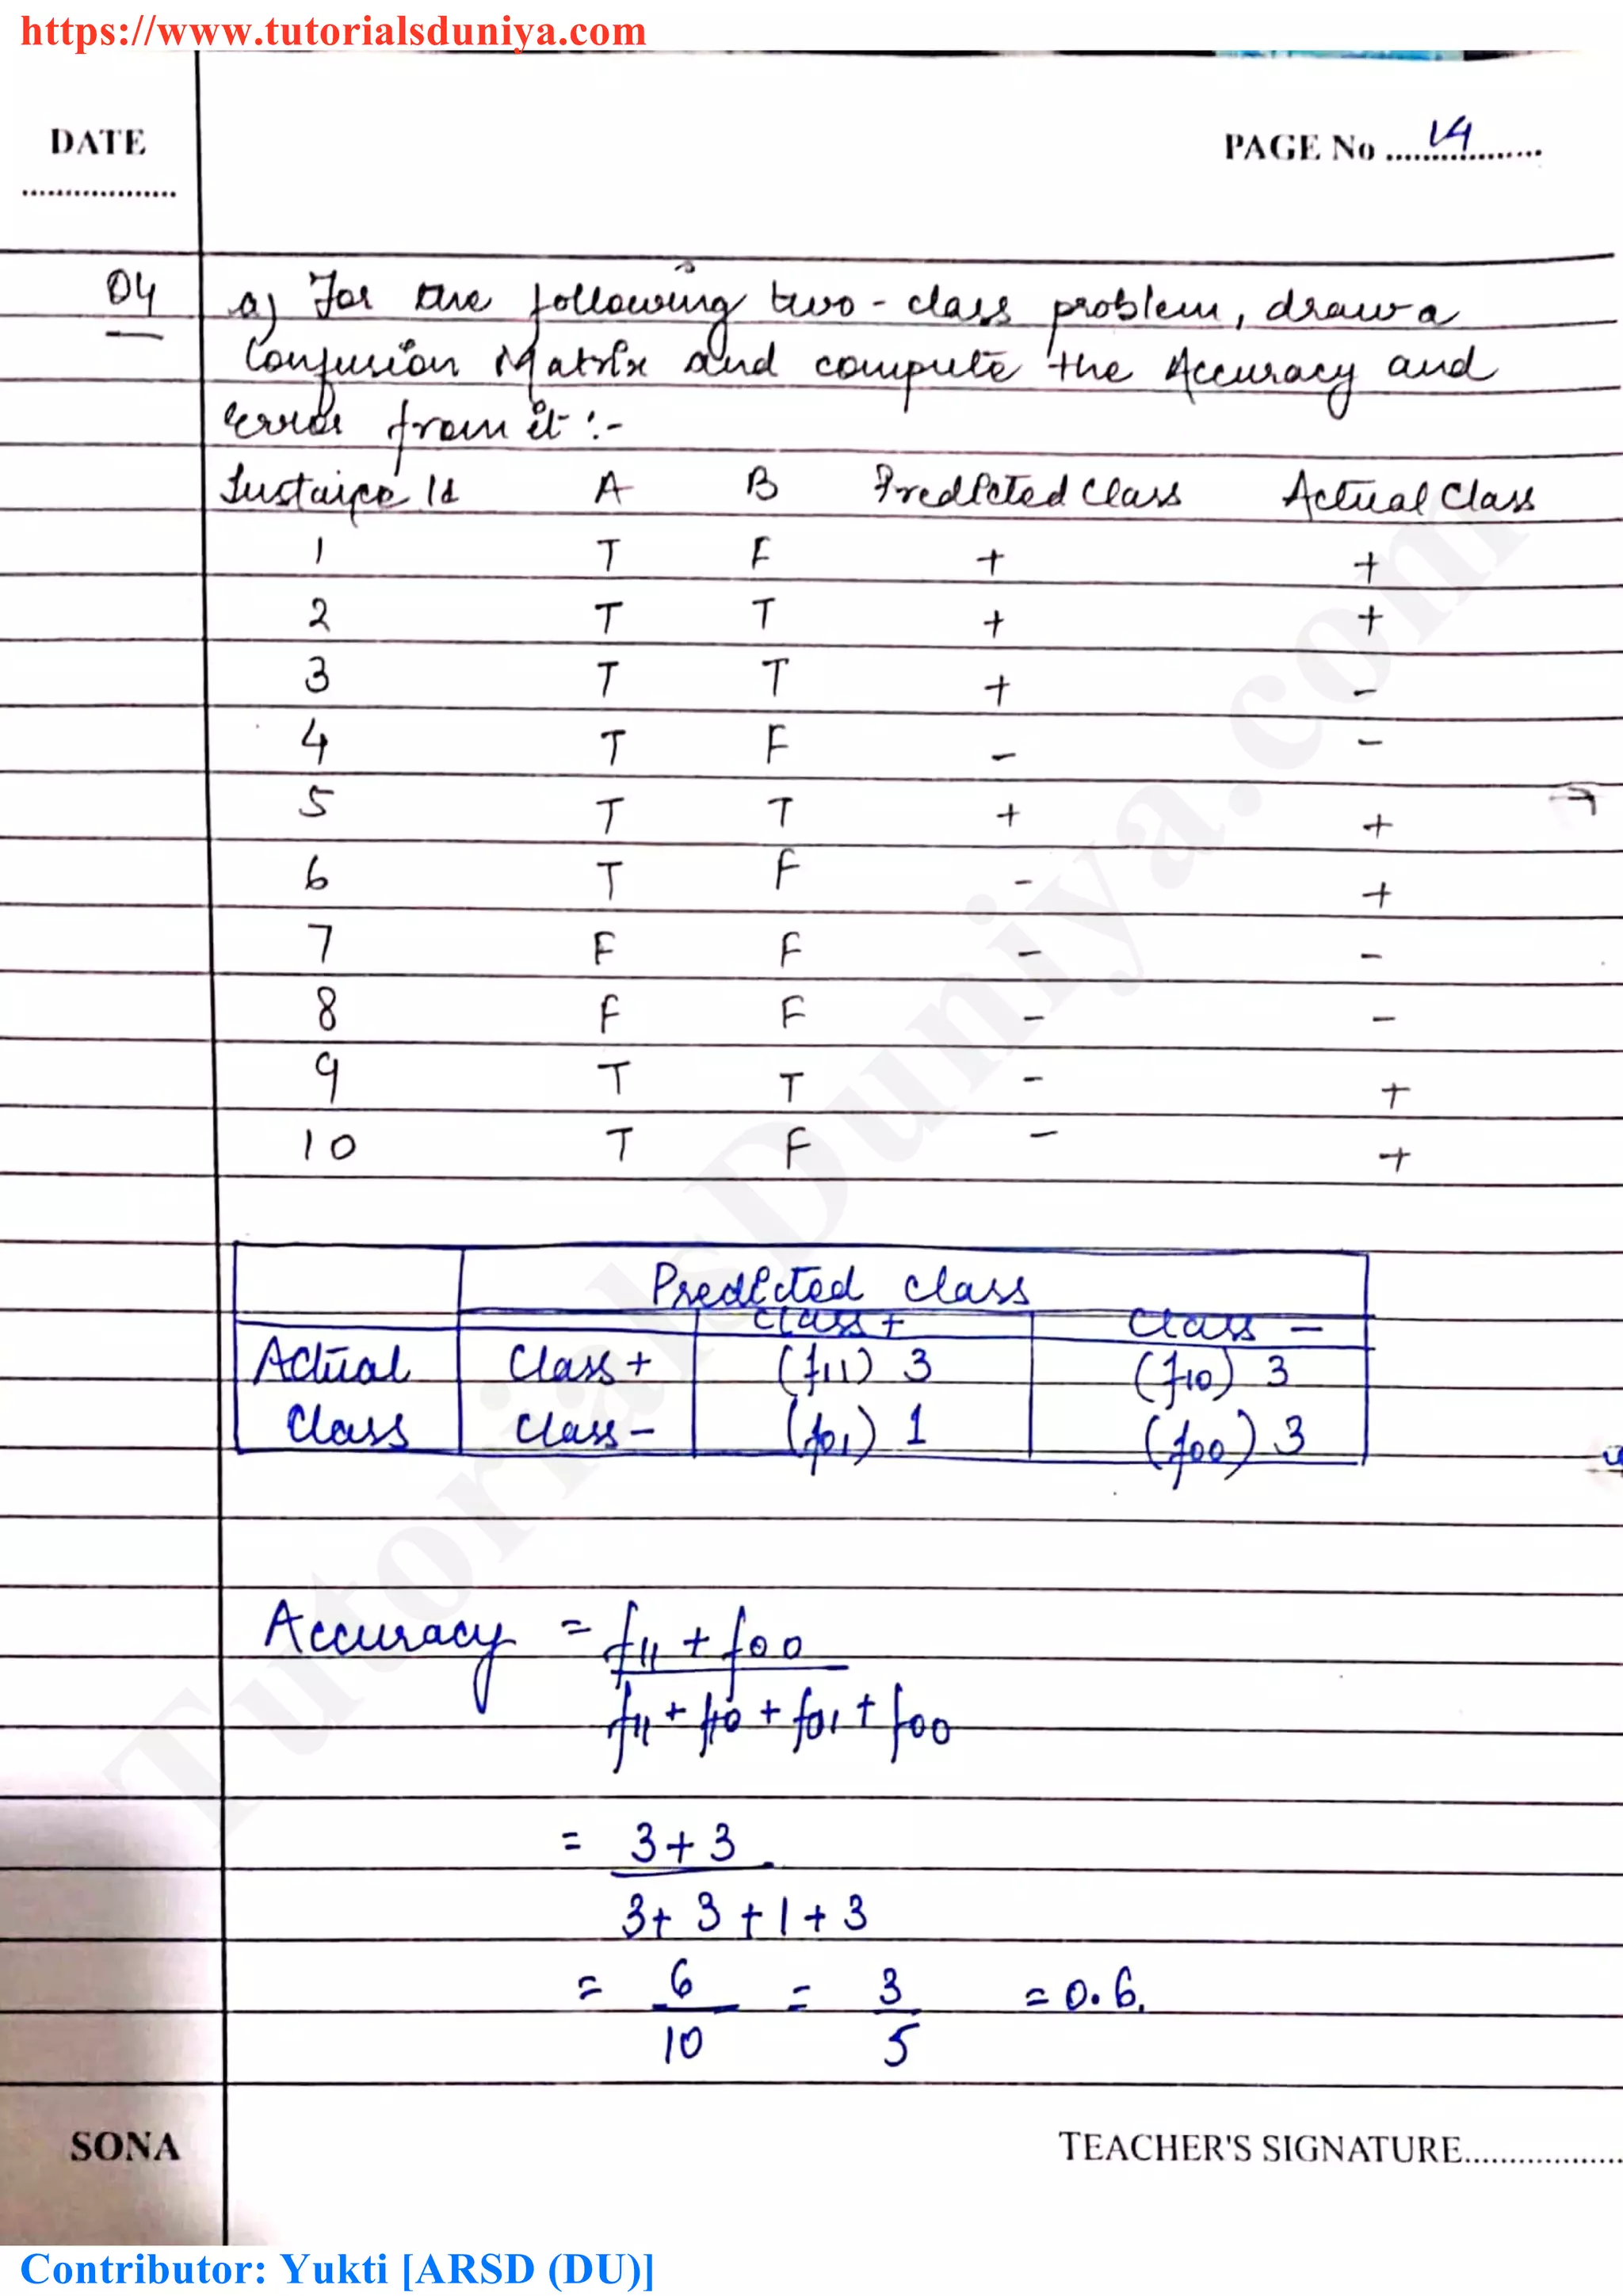 https://www.tutorialsduniya.com
DATE
PAGE No 14
Q4 a) For the following two-class problem, draw a
Confusion Matrix and compute the Accuracy and
Error from it :-
Instance Id A B Predicted Class Actual Class
1 T F + +
2 T T + +
3 T T + -
4 T F - -
5 T T + +
6 T F - +
7 F F - -
8 F F - -
9 T T - +
10 T F - +
Predicted class
class + class -
Actual class + (f11) 3 (f10) 3
class class - (f01) 1 (f00) 3
Accuracy = f11 + f00
f11 + f10 + f01 + f00
= 3+3
3+ 3 +1+3
= 6 = 3 = 0.6.
10 5
SONA TEACHER'S SIGNATURE
Contributor: Yukti [ARSD (DU)]
TutorialsDuniya.com